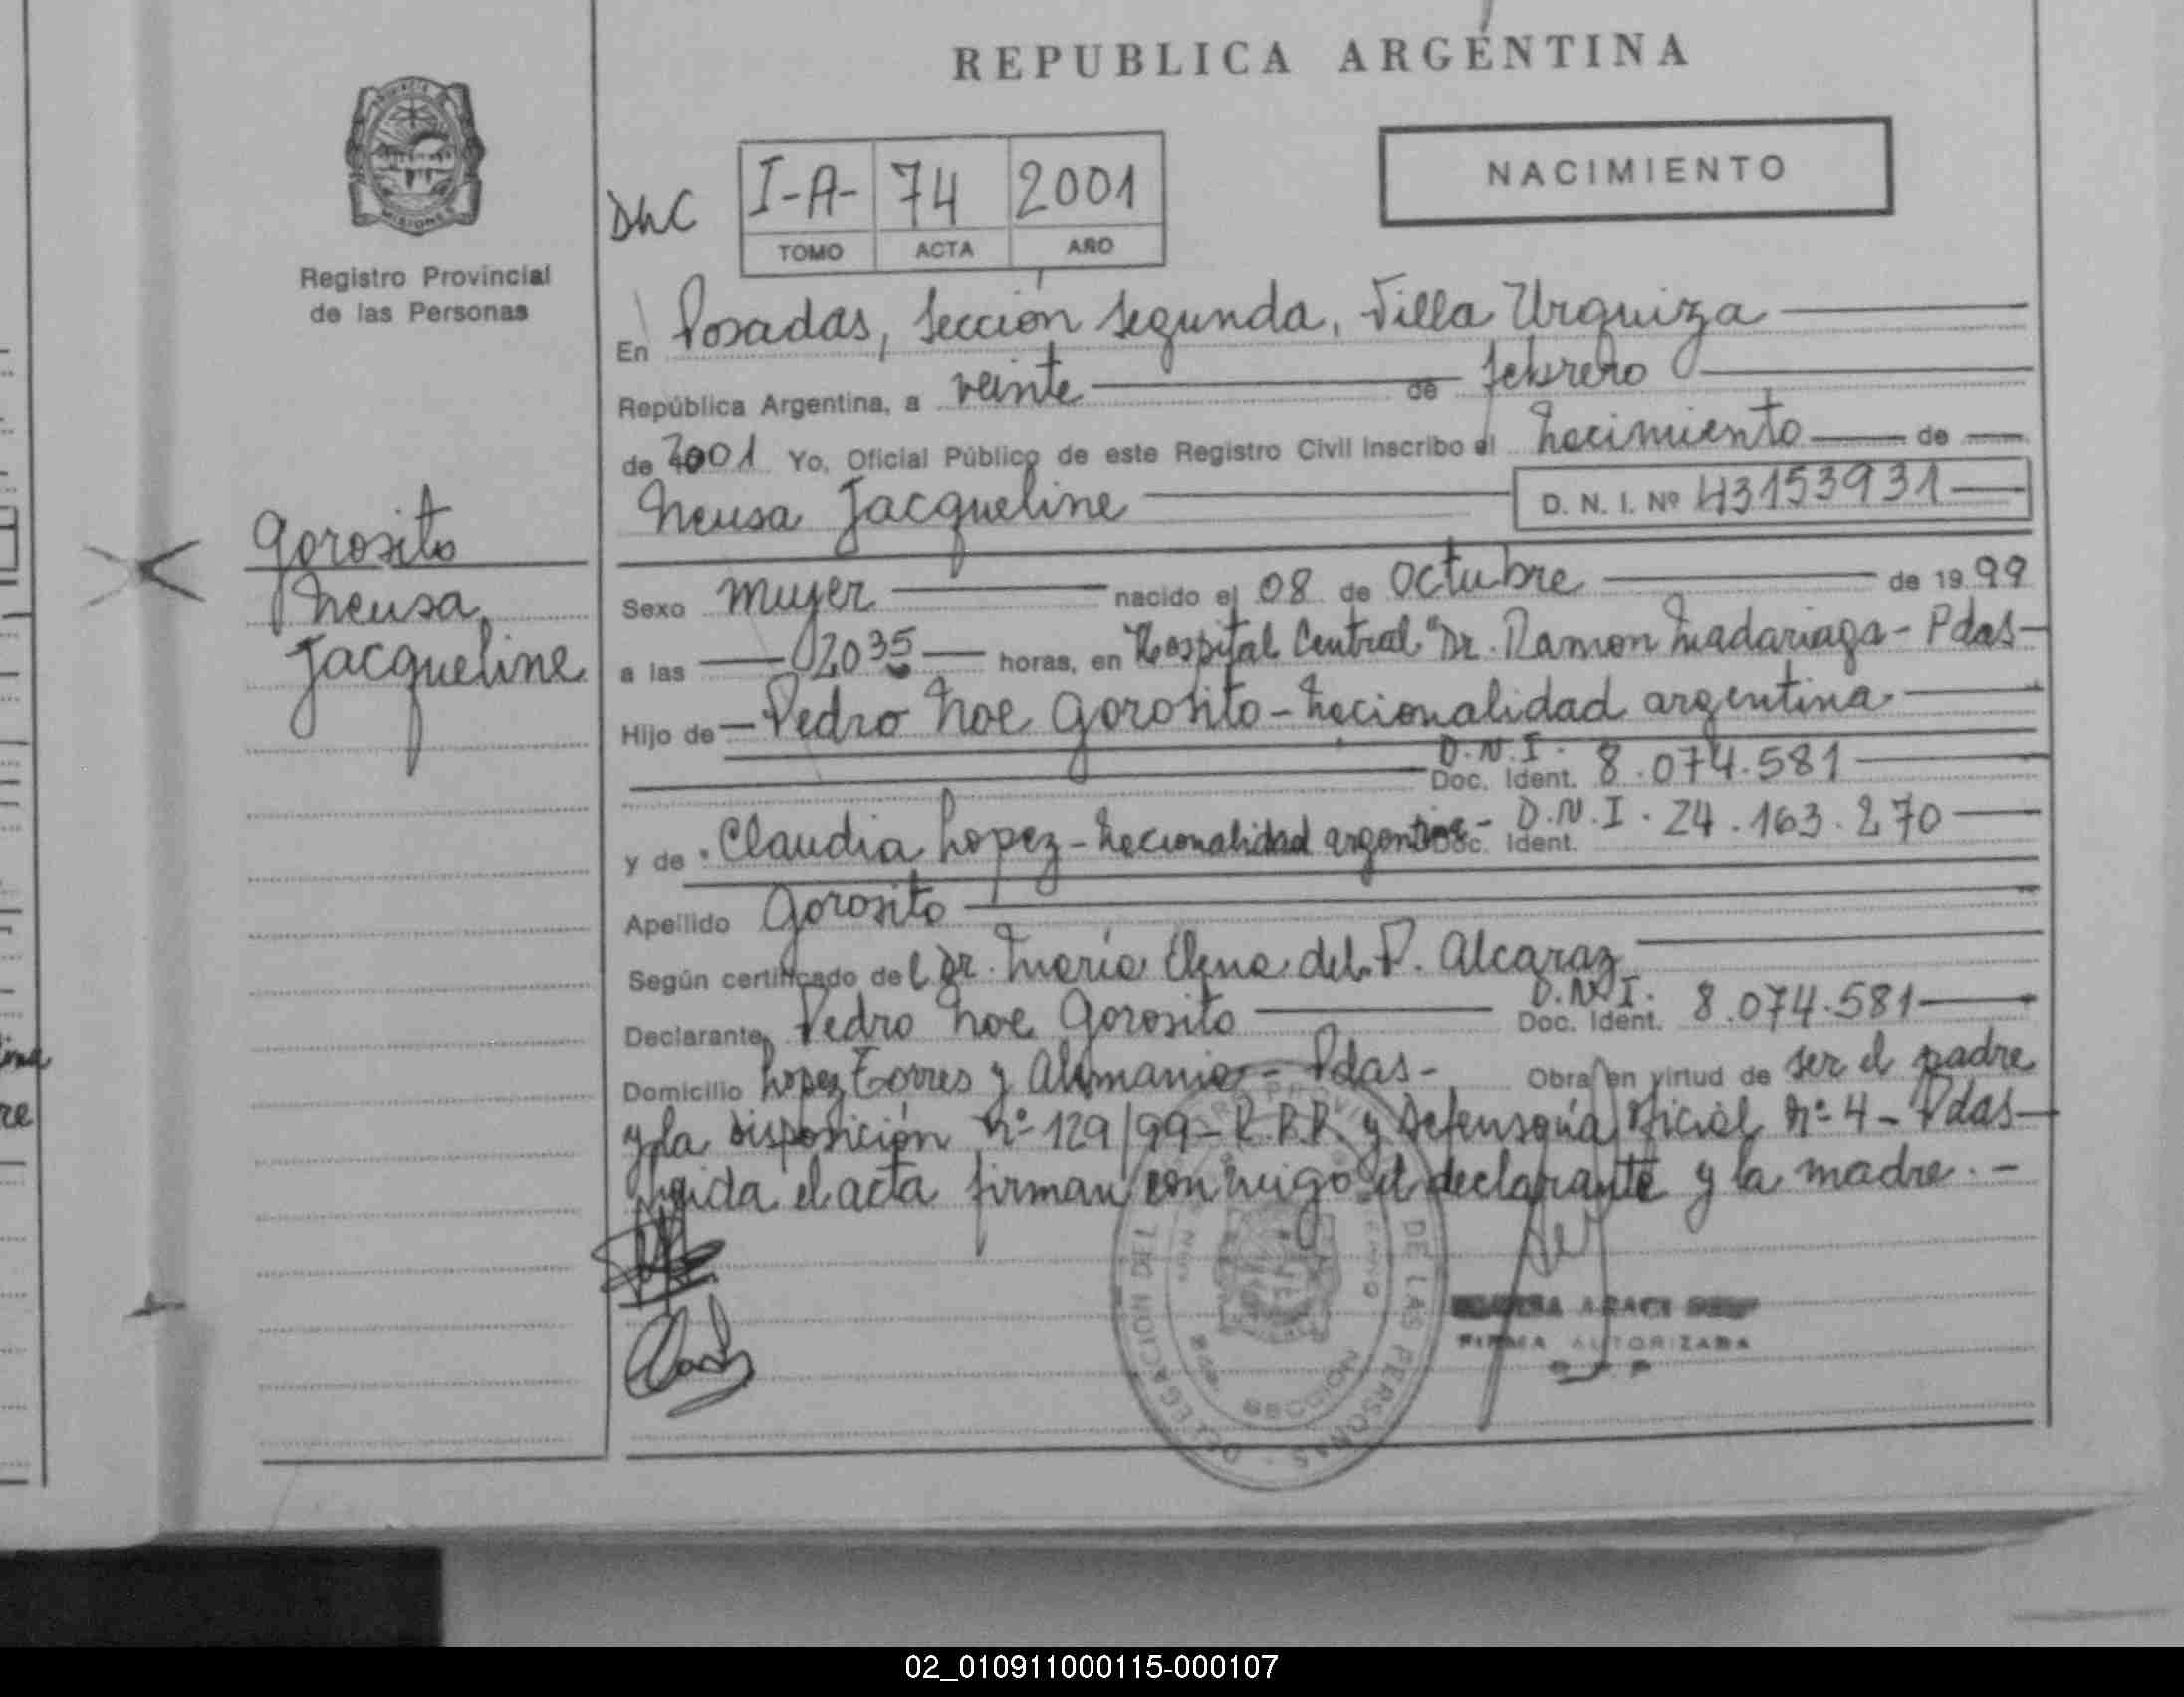 REPUBLICA ARGENTINA
MISIONES
Registro Provincial
de las Personas
DNC
I-A- 74 2001
TOMO ACTA AÑO
NACIMIENTO
En Posadas, Sección Segunda, Villa Urquiza
República Argentina, a veinte de febrero
de 2001 Yo, Oficial Público de este Registro Civil Inscribo el Nacimiento de
Neusa Jacqueline D. N. I. Nº 43153931
Gorosito
Neusa
Jacqueline
Sexo mujer nacido el 08 de Octubre de 1999
a las 2035 horas, en Hospital Central "Dr. Ramon Madariaga - Pdas -
Hijo de - Pedro Noe Gorosito - Nacionalidad argentina
D.N.I.
Doc. Ident. 8.074.581
y de Claudia Lopez - Nacionalidad argentina - Doc. Ident. D.N.I. 24.163.270
Apellido Gorosito
Según certificado del Dr. María Elena del P. Alcaraz
Declarante Pedro Noe Gorosito D.N.I. Doc. Ident. 8.074.581
Domicilio Lopez Torres y Alemania - Pdas - Obra en virtud de ser el padre
y la Disposición Nº 129/99 - R.P.P. y Defensoría Oficial Nº 4 - Pdas -
Leida el acta firman conmigo el declarante y la madre. -
DELEGACION DEL REGISTRO PROVINCIAL DE LAS PERSONAS
FIRMA AUTORIZADA
02_010911000115-000107